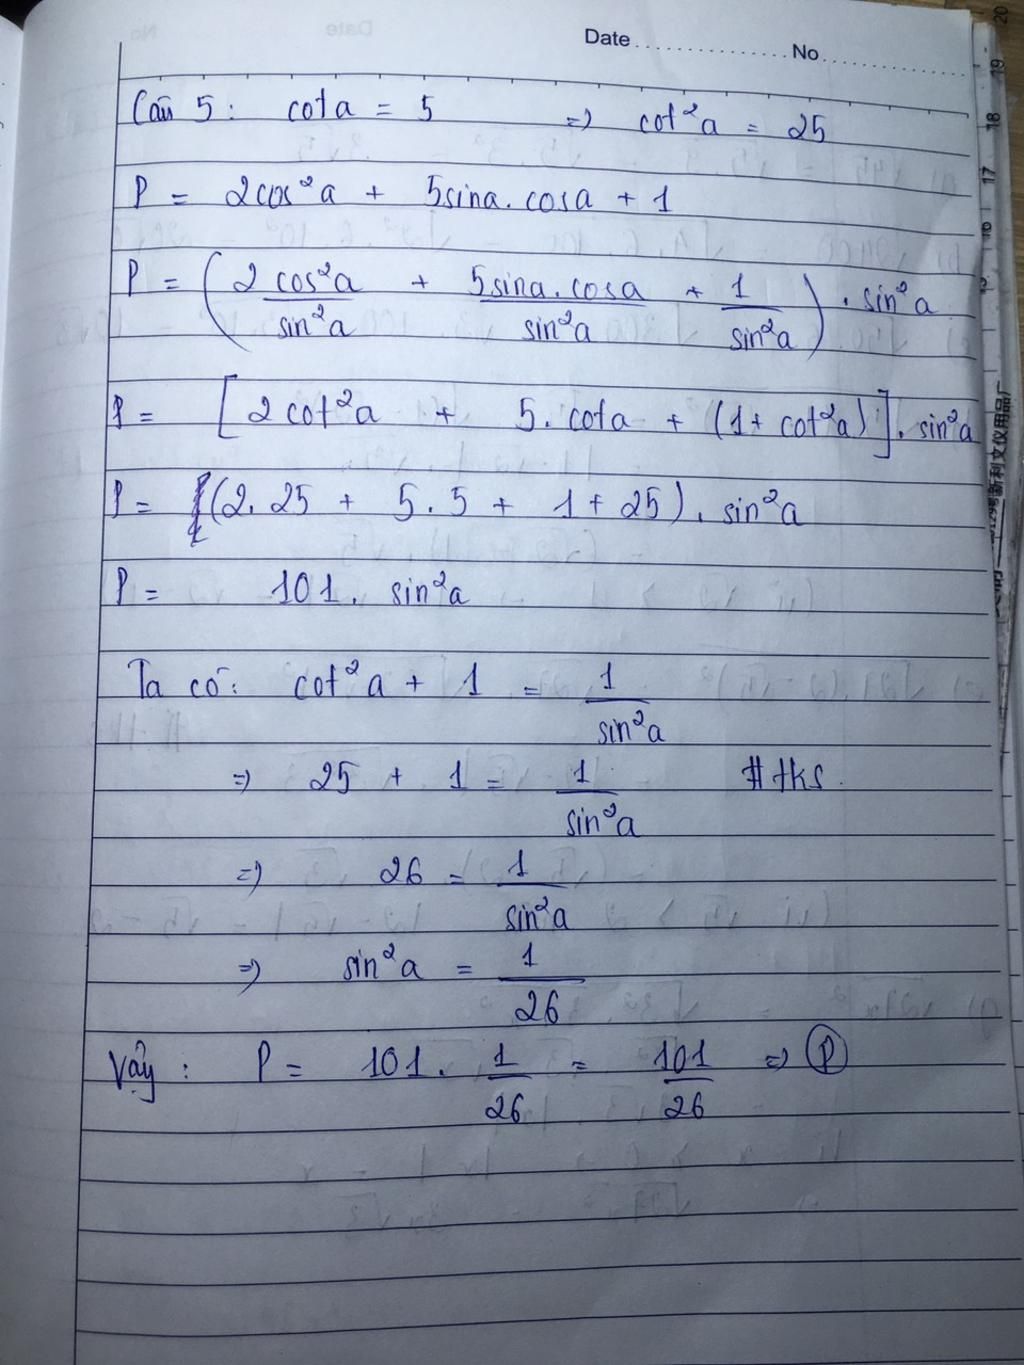 Date.................No.................
Câu 5: cota = 5 => cot²a = 25
P = 2cos²a + 5sina.cosa + 1
P = (2 cos²a/sin²a + 5sina.cosa/sin²a + 1/sin²a) . sin²a
P = [2cot²a + 5.cota + (1 + cot²a)] . sin²a
P = (2.25 + 5.5 + 1 + 25) . sin²a
P = 101. sin²a
Ta có: cot²a + 1 = 1/sin²a
=> 25 + 1 = 1/sin²a #tks.
=> 26 = 1/sin²a
=> sin²a = 1/26
Vậy: P = 101. 1/26 = 101/26 => P
16
17
18
19
20